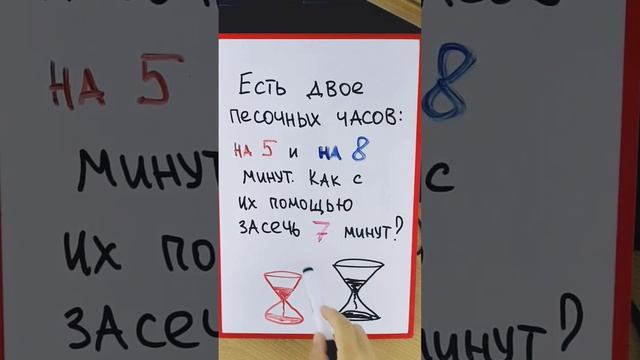 Есть двое
песочных часов:
на 5 и на 8
минут. Как с
их помощью
засечь 7 минут?